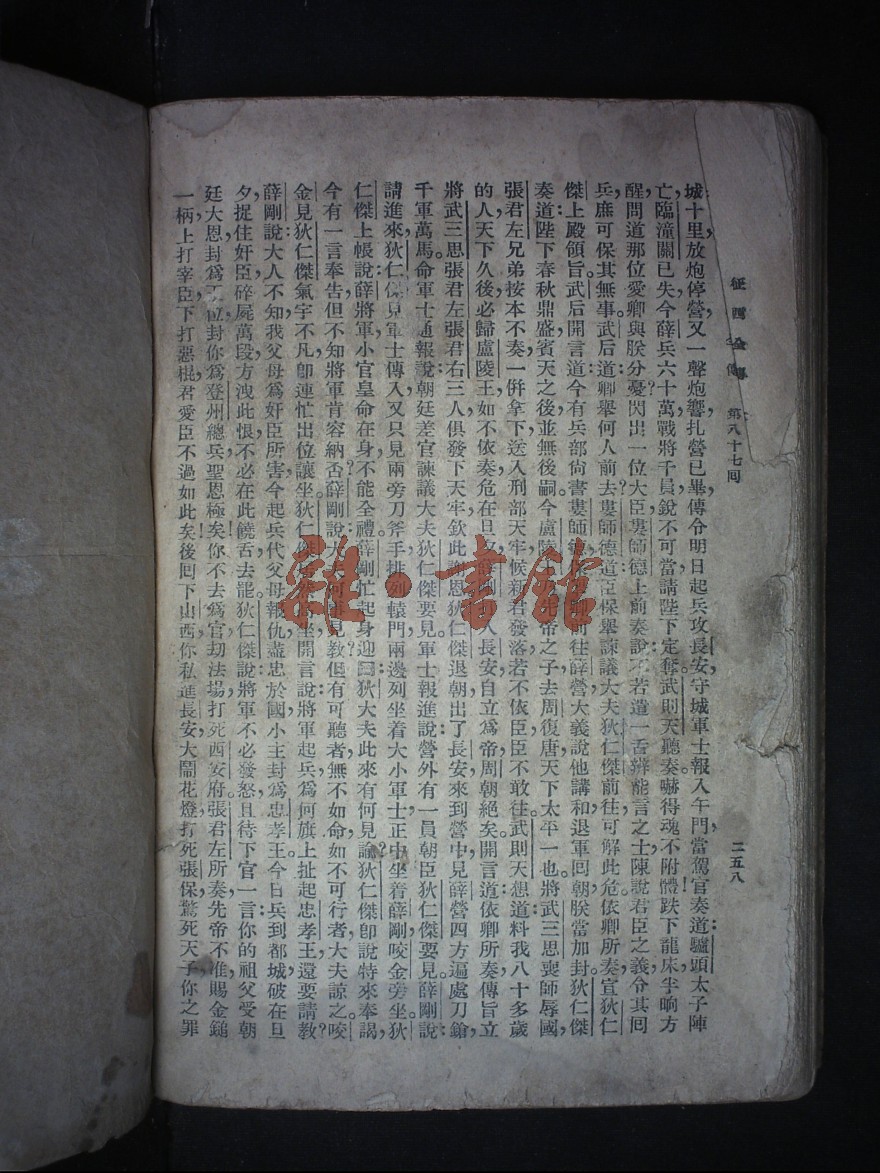 征西全傳　第八十七回　二五八
城十里放炮停營，又一聲炮響扎營已畢，傳令明日起兵攻長安，守城軍士報入午門，當駕官奏道：驢頭太子陣
亡，臨潼關已失，今薛兵六十萬，戰將千員，銳不可當，請陛下定奪。武則天聽奏，嚇得魂不附體，跌下龍床，半晌方
醒，問道：那位愛卿與朕分憂？閃出一位大臣婁師德上前奏說：不若遣一舌辯能言之士，陳說君臣之義，令其回
兵，庶可保其無事。武后道：卿舉何人前去？婁師德道：臣保舉諫議大夫狄仁傑前往，可解此危。依卿所奏，宣狄仁
傑上殿領旨。武后開言道：今有兵部尚書婁師德保卿前往薛營，大義說他講和退軍，回朝朕當加封。狄仁傑
奏道：陛下春秋鼎盛，賓天之後，並無後嗣，今盧陵王先帝之子，去周復唐，天下太平一也。將武三思喪師辱國，
張君左兄弟按本不奏，一併拿下，送入刑部天牢，候新君發落，若不依臣，臣不敢往。武則天想道：料我八十多歲
的人，天下久後必歸盧陵王，如不依奏，危在旦夕，長安自立為帝，周朝絕矣。開言道：依卿所奏，傳旨立
將武三思張君左張君右三人，俱發下天牢，欽此謝恩。狄仁傑退朝，出了長安，來到營中，見薛營四方遍處刀鎗，
千軍萬馬。命軍士通報說：朝廷差官諫議大夫狄仁傑要見。軍士報進說：營外有一員朝臣狄仁傑要見。薛剛說：
請進來。狄仁傑見軍士傳入，又只見兩旁刀斧手，排列轅門，兩邊列坐着大小軍士，正中坐着薛剛，咬金旁坐。狄
仁傑上帳說：薛將軍，小官皇命在身，不能全禮。薛剛忙起身迎曰：狄大夫此來有何見諭？狄仁傑卽說：特來奉謁，
今有一言奉告，但不知將軍肯容納否？薛剛說：大夫何事見教？但有可聽者，無不如命，如不可行者，大夫諒之。咬
金見狄仁傑氣宇不凡，卽連忙出位讓坐，狄仁傑坐，開言說：將軍起兵爲何旗上扯起忠孝王，還要請教？
薛剛說：大人不知，我父母爲奸臣所害，今起兵代父母報仇，盡忠於國，小主封爲忠孝王，今日兵到都城，破在旦
夕，捉住奸臣，碎屍萬段，方洩此恨，不必在此饒舌，去罷。狄仁傑說：將軍不必發怒，且待下官一言：你的祖父受朝
廷大恩，封爲王位，封你爲登州總兵，聖恩極矣，你不去爲官，刧法場，打死西安府，張君左所奏，先帝不准，賜金鎚
一柄，上打宰臣，下打惡棍，君愛臣不過如此矣！後回下山西，你私進長安，大鬧花燈，打死張保，驚死天子，你之罪
雜·書館